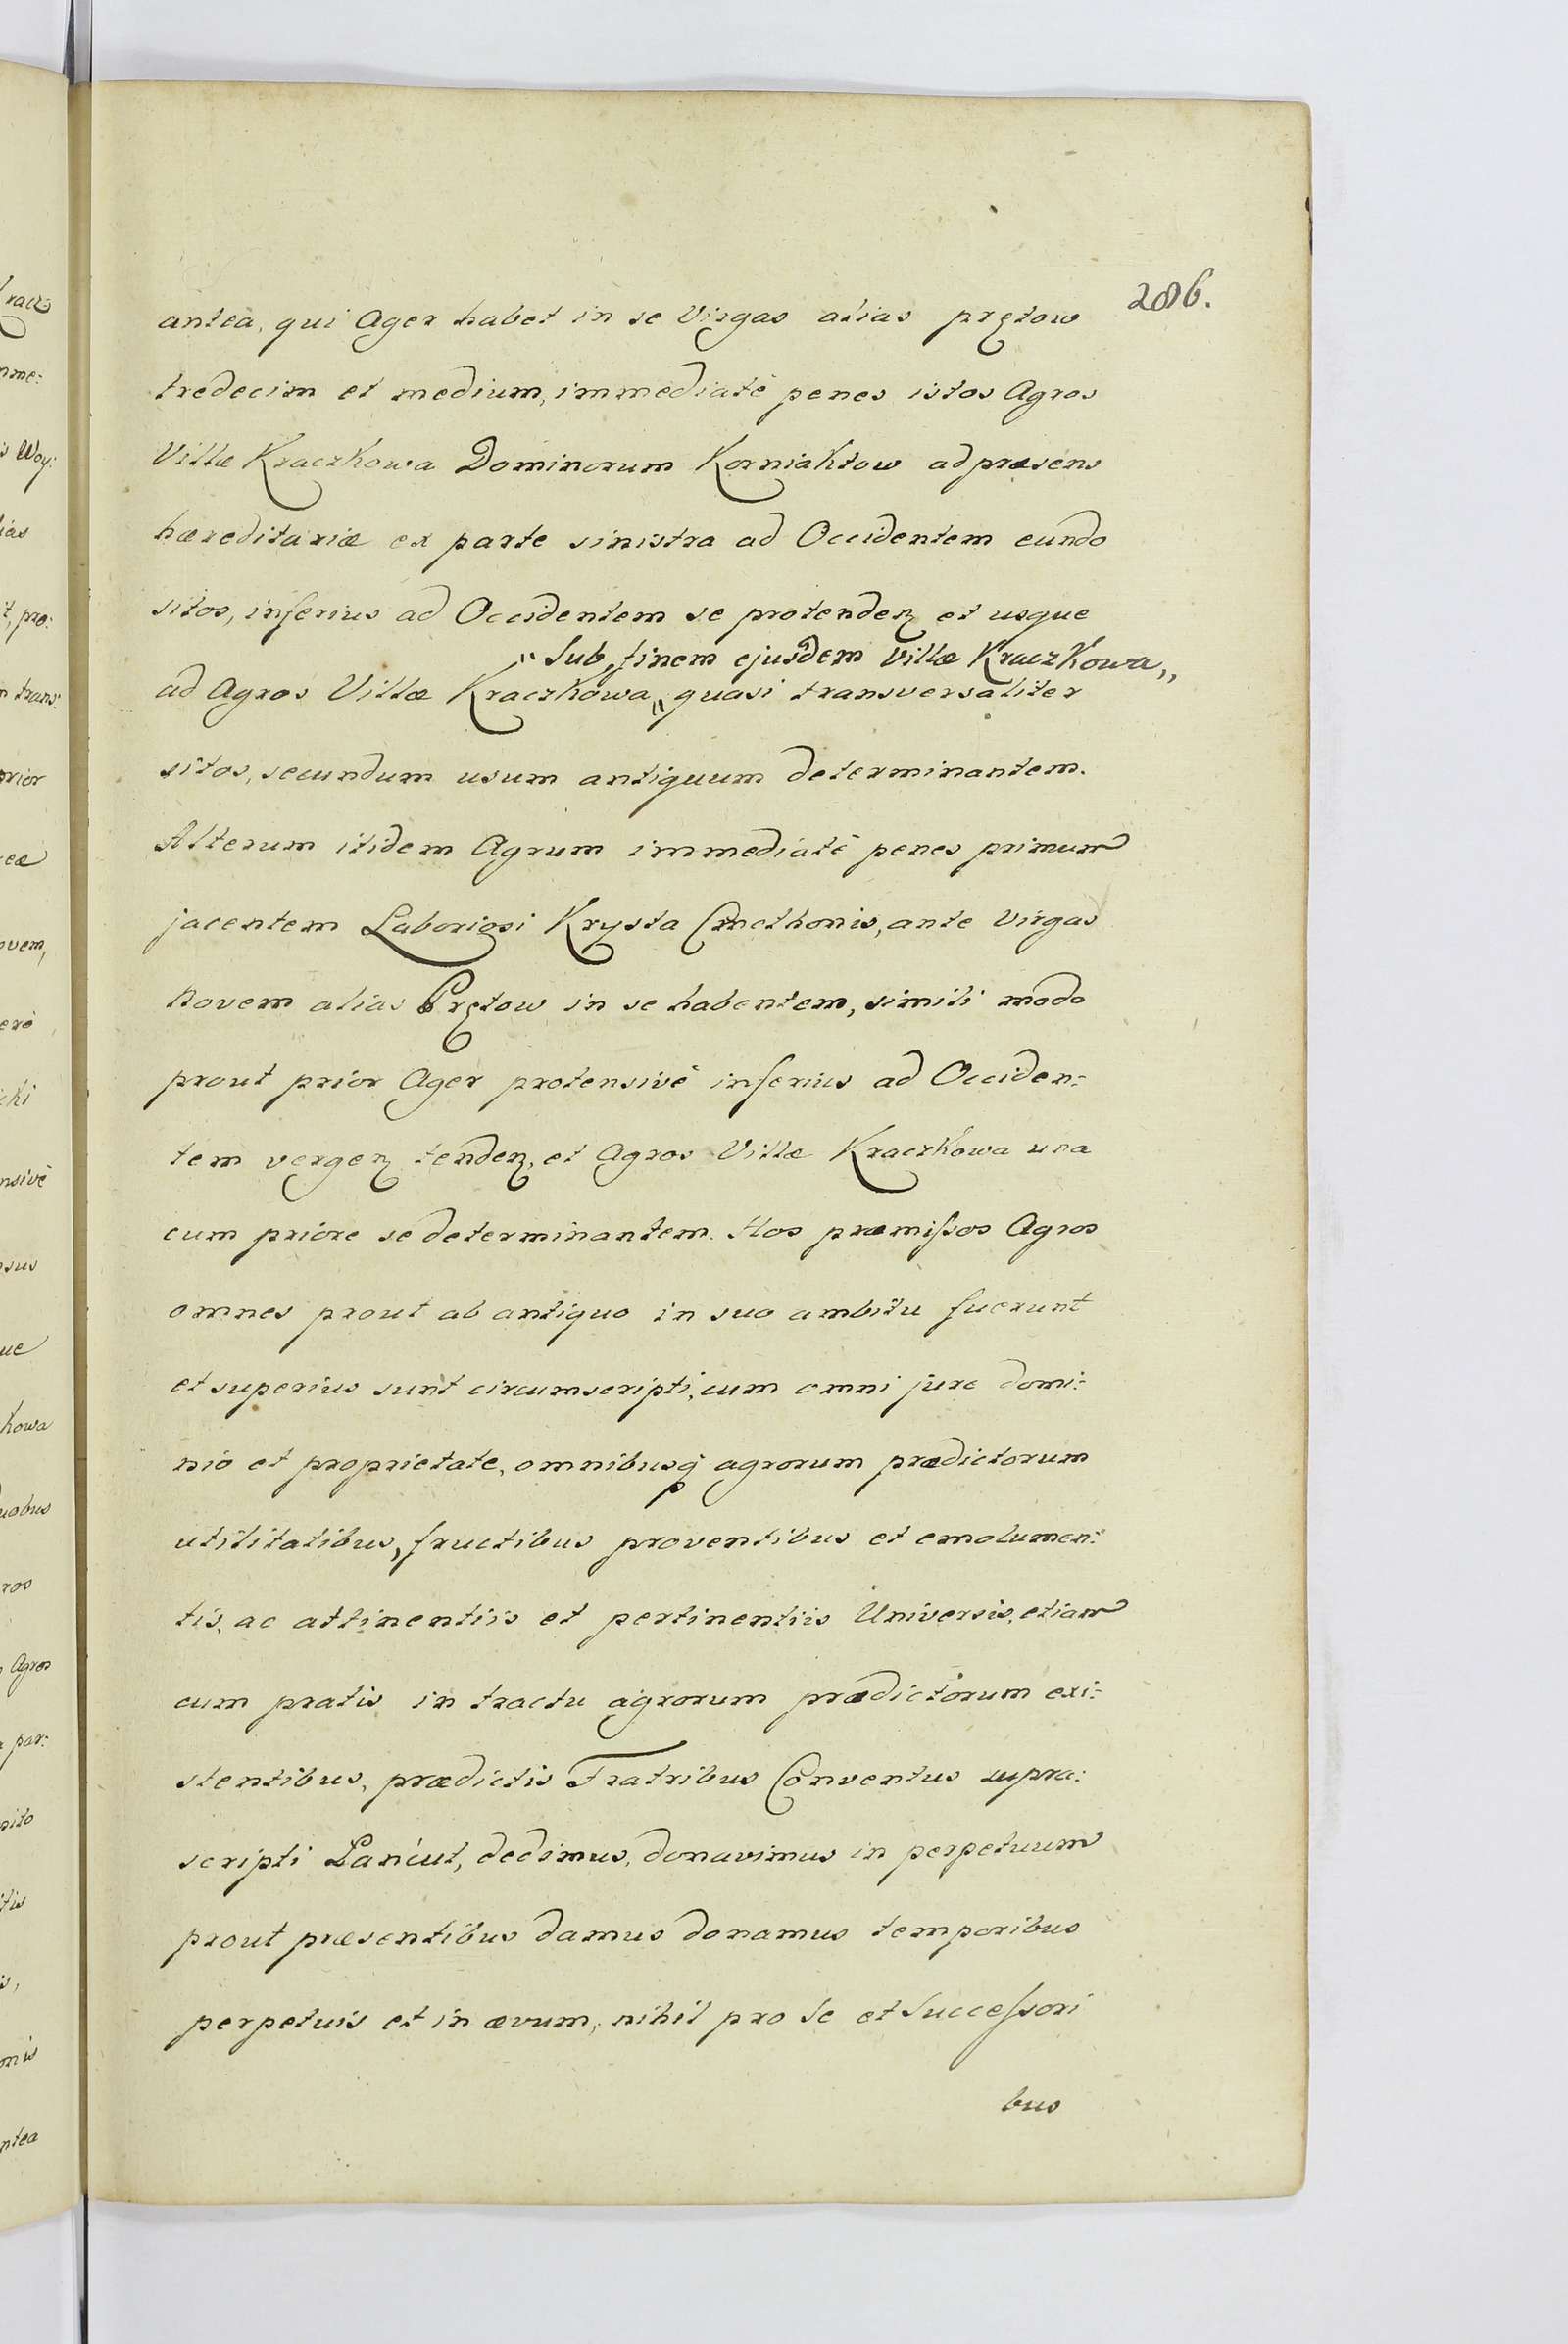 286.
antea, qui Ager habet in se Virgas alias prętow
tredecim et medium, immediatè penes istos Agros
Villæ Kraczkowa Dominorum Korniaktow ad præsens
hæreditariæ ex parte sinistra ad Occidentem eundo
sitos, inferius ad Occidentem se protenden et usque
"Sub finem ejusdem Villæ Kraczkowa„
ad Agros Villæ Kraczkowa „ quasi transversaliter
sitos, secundum usum antiquum determinantem.
Alterum itidem Agrum immediatè penes primum
jacentem Laboriosi Krysta Cmethonis, ante Virgas
Novem alias Prętow in se habentem, simili modo
prout prior Ager protensivè inferius ad Occiden:
tem vergen tenden, et Agros Villæ Kraczkowa una
cum priore se determinantem. Hos præmiſsos Agros
omnes prout ab antiquo in suo ambitu fuerunt
et superius sunt circumscripti, cum omni jure domi:
nio et proprietate, omnibusq agrorum prædictorum
utilitatibus, fructibus proventibus et emolumen:
tis, ac attinentiis et pertinentiis Universis, etiam
cum pratis in tractu agrorum prædictorum exi:
stentibus, prædictis Fratribus Conventus supra:
scripti Lancut, dedimus, donavimus in perpetuum
prout præsentibus damus donamus temporibus
perpetuis et in ævum, nihil pro se et Succeſsori
bus